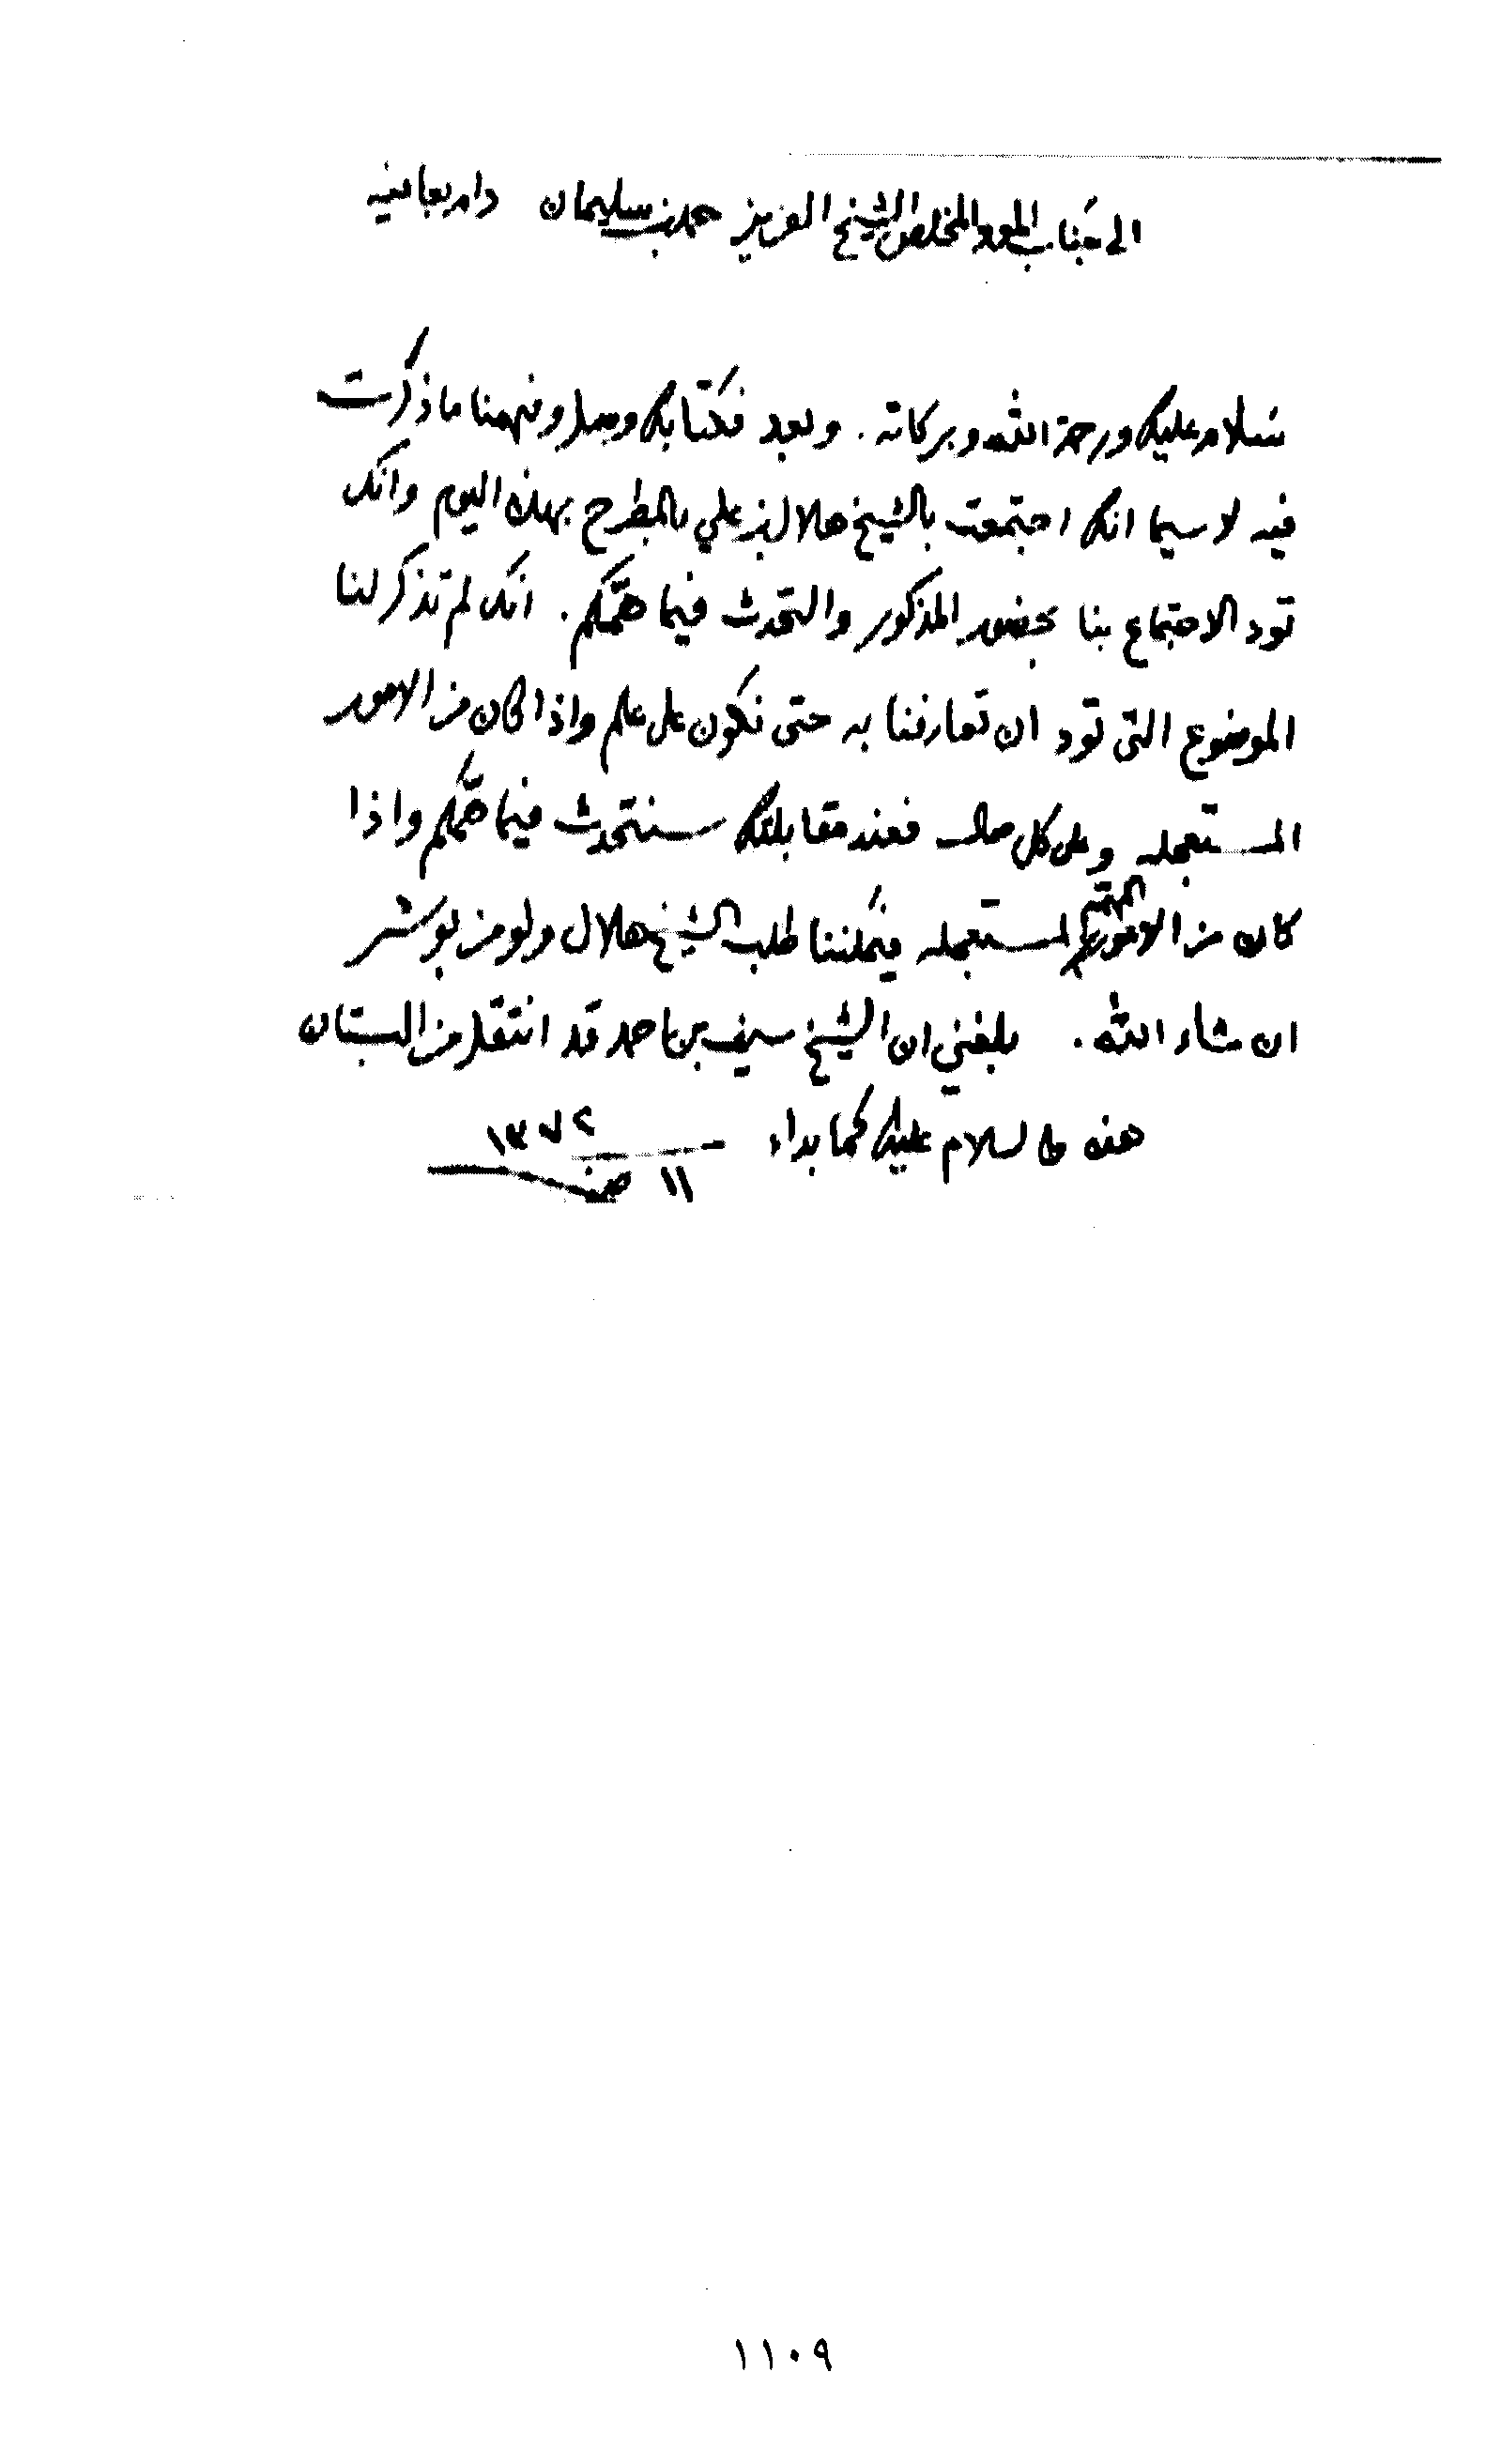 الى جناب المود المخلص الشيخ العزيز حمد بن سليمان دام بعافيه
سلام عليك ورحمة الله وبركاته. وبعد فكتابك وصل وفهمنا ما ذكرت
فيه لا سيما انك اجتمعت بالشيخ هلال بن علي بالمطرح بهذه اليوم وانك
تود الاجتماع بنا بحضور المذكور والتحدث فيما همّكم. انك لم تذكر لنا
الموضوع التي تود ان تعارفنا به حتى نكون على علم واذا كان من الامور
المستعجله وعلى كل حال فعند مقابلتك سنتحدث فيما همّكم واذا
كان من الامور المهمه المستعجله فيمكننا طلب الشيخ هلال ولو من بوشر
ان شاء الله. بلغني ان الشيخ سيف بن احمد قد انتقل من البستان
هذه والسلام عليك كما بداء ١١ صفر ١٣٧٢
١١٠٩